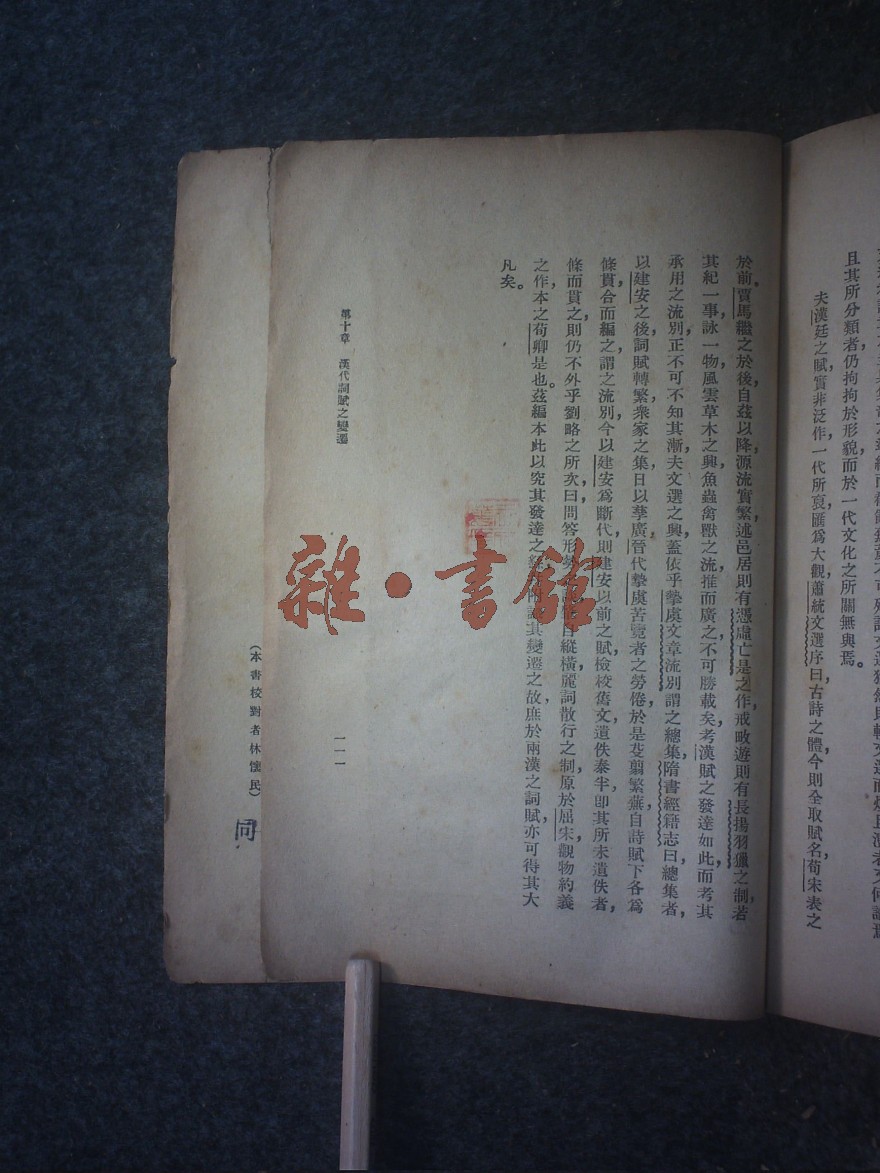 且其所分類者仍拘拘於形貌,而於一代文化之所關無與焉。
夫漢廷之賦,實非泛作,一代所裒,匯爲大觀,蕭統文選序曰:古詩之體,今則全取賦名,荀宋表之
於前,賈馬繼之於後,自茲以降,源流實繁,述邑居則有憑虛亡是之作,戒畋遊則有長揚羽獵之制,若
其紀一事,詠一物,風雲草木之興,魚蟲禽獸之流,推而廣之,不可勝載矣,考漢賦之發達如此,而考其
承用之流別,正不可不知其漸,夫文選之興,蓋依乎摯虞文章流別,謂之總集,隋書經籍志曰,總集者,
以建安之後,詞賦轉繁,衆家之集,日以孳廣,晉代摯虞,苦覽者之勞倦,於是芟翦繁蕪,自詩賦下,各爲
條貫,合而編之,謂之流別,今以建安爲斷代,則建安以前之賦,檢校舊文,遺佚泰半,即其所未遺佚者,
條而貫之,則仍不外乎劉略之所次曰,問答形勢,縱橫,麗詞散行之制,原於屈宋,觀物約義
之作,本之荀卿是也。茲編本此,以究其發達之其變遷之故,庶於兩漢之詞賦,亦可得其大
凡矣。
第十章 漢代詞賦之變遷
一一一
(本書校對者林懷民)
同
雜·書館